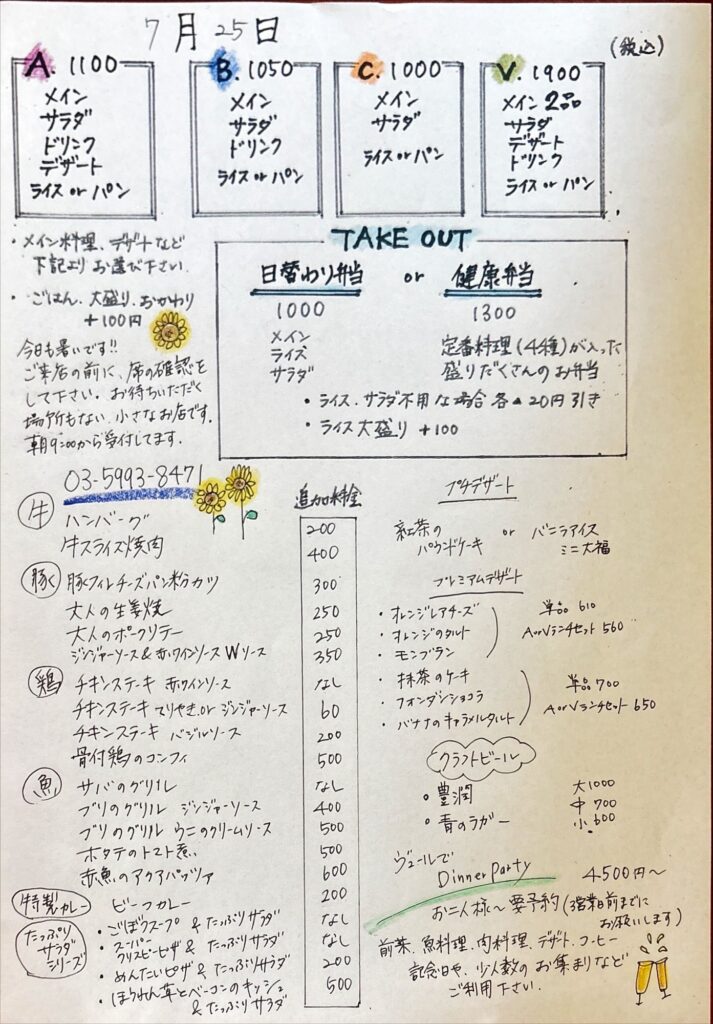 7月25日
(税込)
A. 1100
メイン
サラダ
ドリンク
デザート
ライス or パン
B. 1050
メイン
サラダ
ドリンク
ライス or パン
C. 1000
メイン
サラダ
ライス or パン
V. 1900
メイン 2品
サラダ
デザート
ドリンク
ライス or パン
・メイン料理、デザートなど
下記より お選び下さい.
・ごはん、大盛り、おかわり
+100円
今日も暑いです!!
ご来店の前に、席の確認を
して下さい。お待ちいただく
場所もない小さなお店です.
朝9:00から受付してます.
03-5993-8471
TAKE OUT
日替わり弁当 or 健康弁当
1000
メイン
ライス
サラダ
1300
定番料理(4種)が入った
盛りだくさんのお弁当
・ライス.サラダ不用な場合 各▲20円引き
・ライス大盛り +100
追加料金
牛
ハンバーグ 200
牛スライス焼肉 400
豚
豚フィレチーズパン粉カツ 300
大人の生姜焼 250
大人のポークソテー 250
ジンジャーソース&赤ワインソースWソース 350
鶏
チキンステーキ 赤ワインソース なし
チキンステーキ てりやき.or ジンジャーソース 60
チキンステーキ バジルソース 200
骨付鶏のコンフィ 500
魚
サバのグリル なし
ブリのグリル ジンジャーソース 400
ブリのグリル ウニのクリームソース 500
ホタテのトマト煮 500
赤魚のアクアパッツァ 600
特製カレー
ビーフカレー 200
たっぷり
サラダ
シリーズ
・ごぼうスープ & たっぷりサラダ なし
・スーパー
クリスピーピザ & たっぷりサラダ なし
・めんたいピザ & たっぷりサラダ 200
・ほうれん草とベーコンのキッシュ 500
& たっぷりサラダ
プチデザート
紅茶の
パウンドケーキ or バニラアイス
ミニ大福
プレミアムデザート
・オレンジレアチーズ
・オレンジのタルト
・モンブラン
単品 610
AorVランチセット 560
・抹茶のケーキ
・フォンダンショコラ
・バナナのキャラメルタルト
単品 700
AorVランチセット 650
クラフトビール
・豊潤
・青のラガー
大1000
中 700
小 600
ヴェールで
Dinner Party 4500円〜
お二人様〜要予約(3営業日前までに
お願いします)
前菜、魚料理、肉料理、デザート、コーヒー
記念日や、少人数のお集まりなど
ご利用下さい.